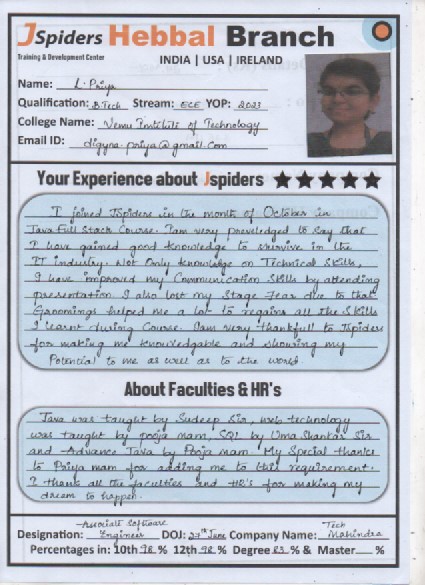 JSpiders Hebbal Branch
Training & Development Center
INDIA | USA | IRELAND
Name: L. Priya
Qualification: B.Tech Stream: ECE YOP: 2023
College Name: Vemu Institute of Technology
Email ID: digyna.priya@gmail.com
Your Experience about Jspiders ★★★★★
I joined Jspiders in the month of October in
Java Full Stack Course. Iam very previledged to say that
I have gained good knowledge to survive in the
IT industry. Not Only knowledge on Technical Skills,
I have improved my Communication Skills by attending
presentation I also lost my Stage Fear due to that
Groomings helped me a lot to regains all the Skills
I learnt during Course. Iam very thankfull to Jspiders
for making me knowledgable and showing my
Potential to me as well as to the world.
About Faculties & HR's
Java was taught by Sudeep Sir, web technology
was taught by pooja mam, SQL by Uma Shankar Sir
and Advance Java by Pooja mam. My Special thanks
to Priya mam for adding me to this requirement.
I thank all the faculties and HR's for making my
dream to happen.
Associate Software Tech
Designation: Engineer DOJ: 27th June Company Name: Mahindra
Percentages in: 10th 98 % 12th 98 % Degree 83 % & Master %